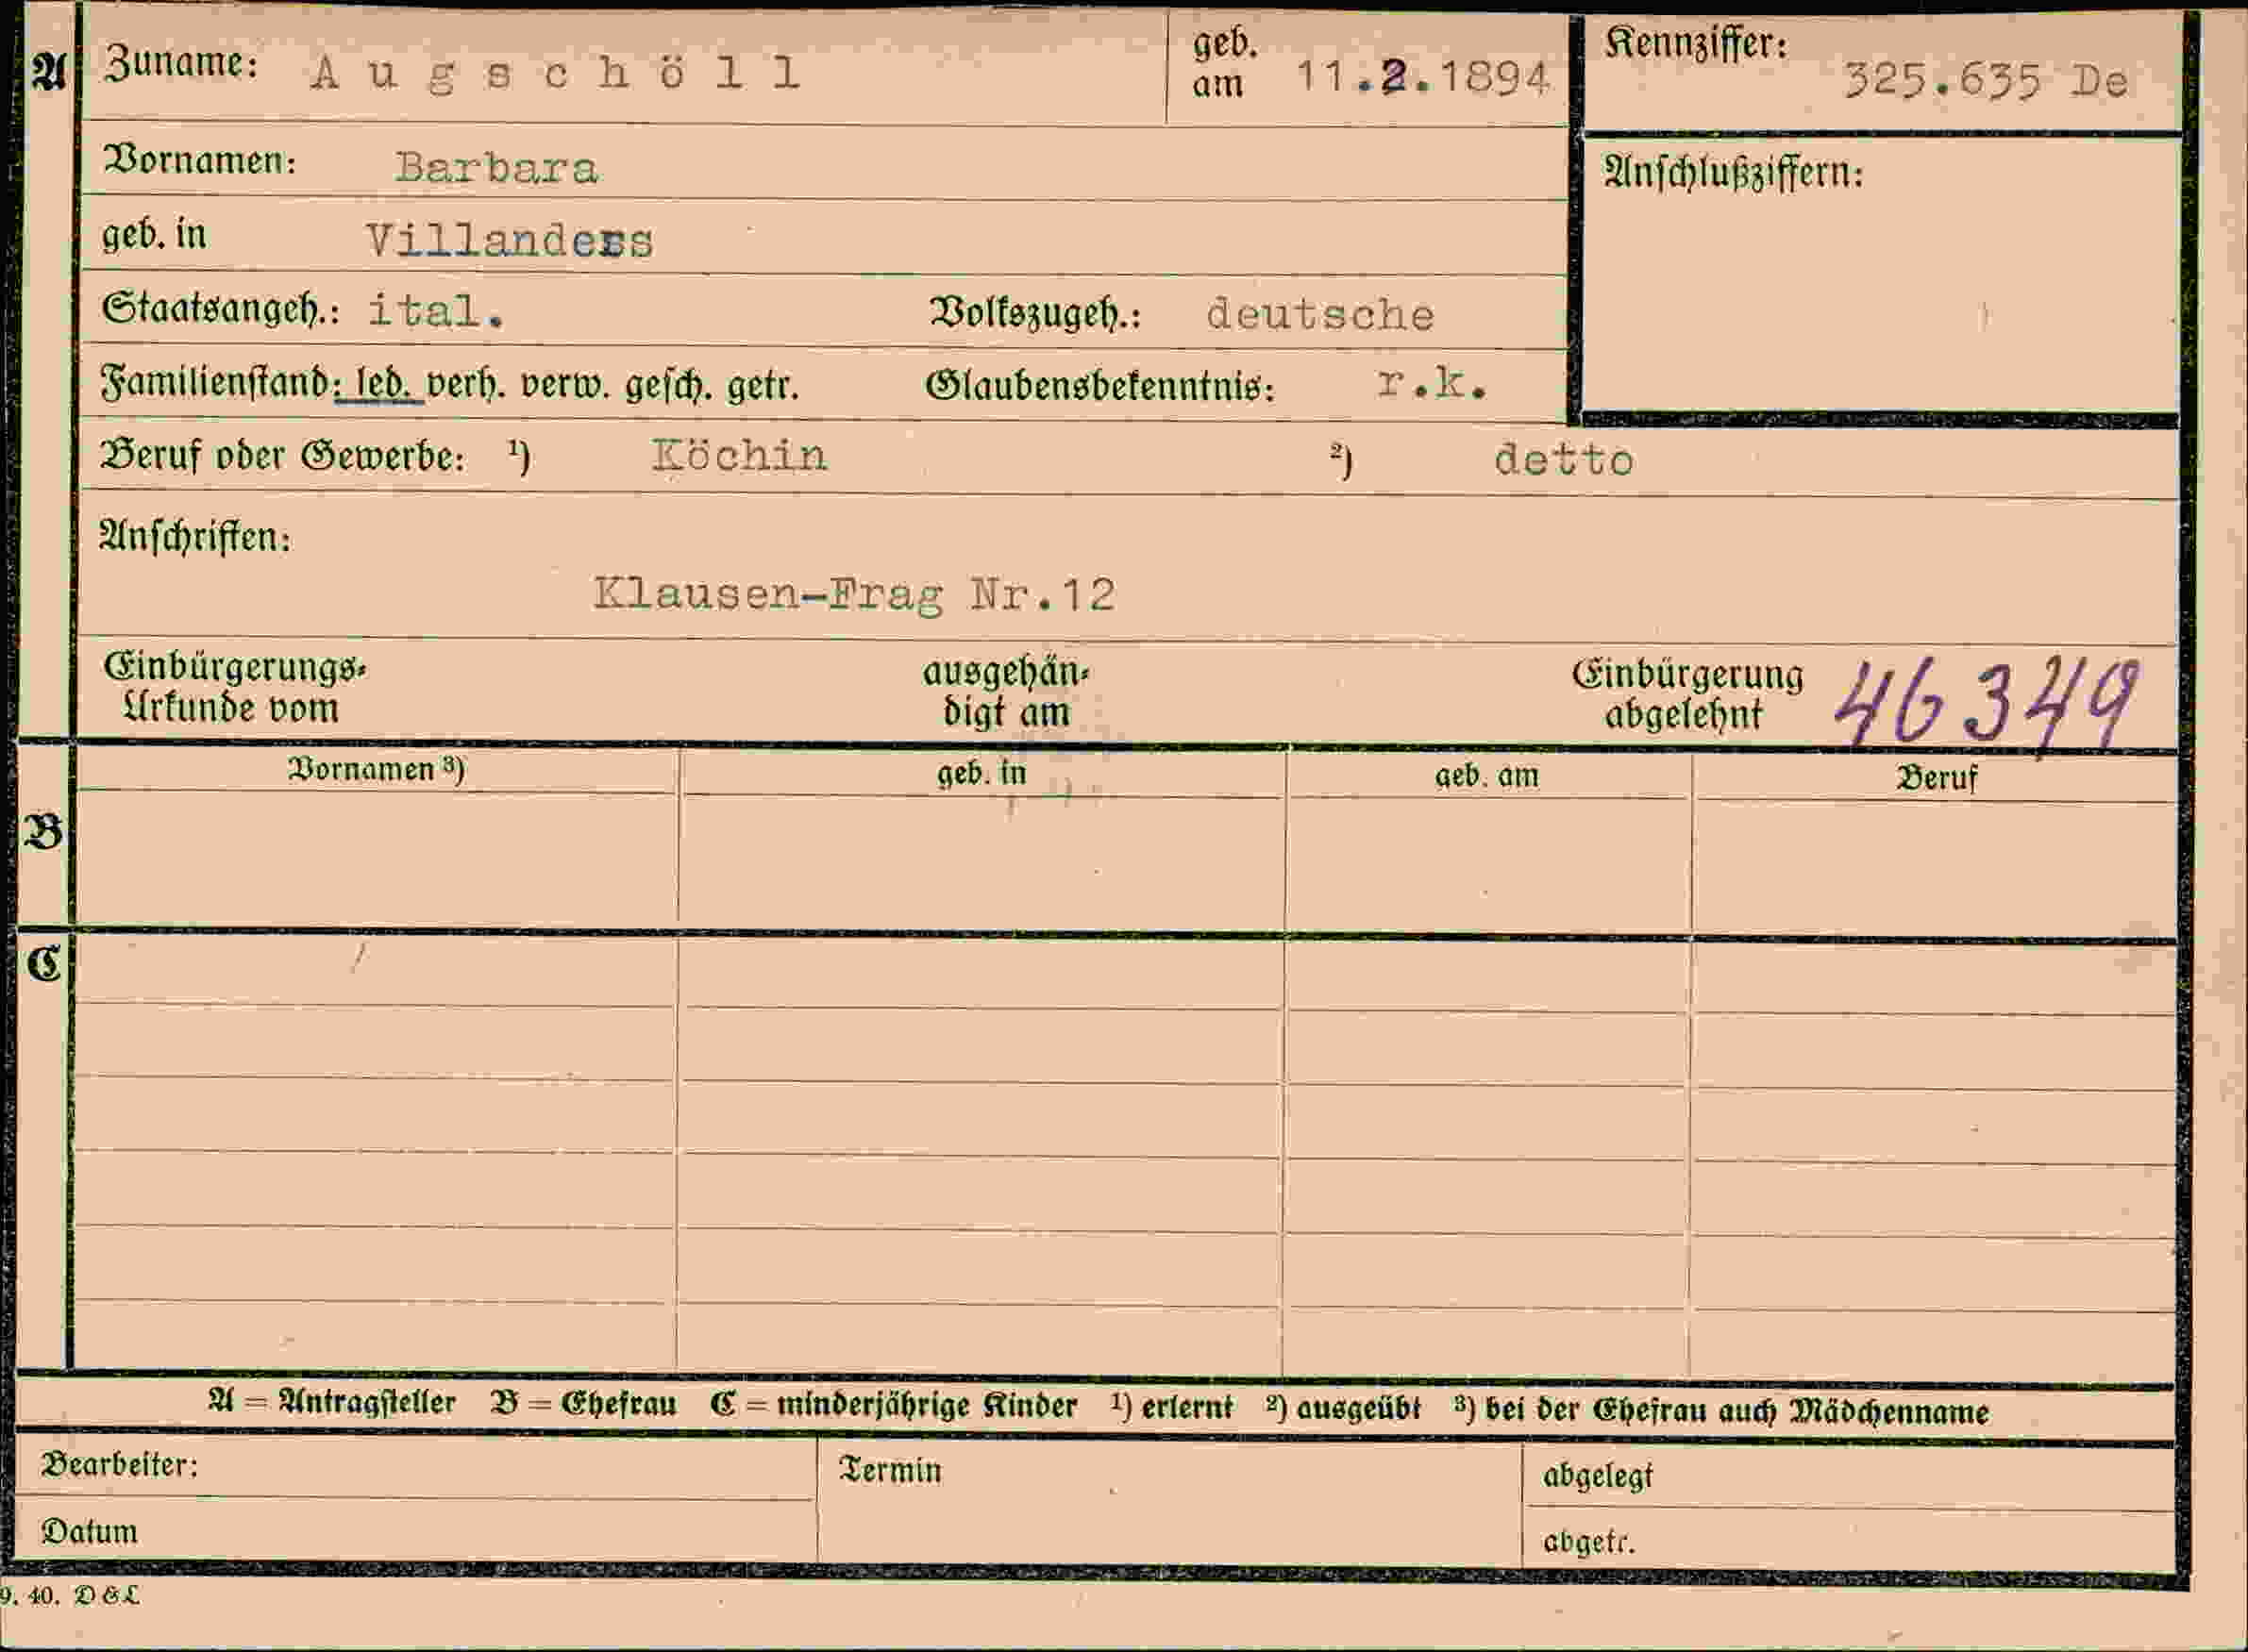 A Zuname: Augschöll geb. am 11.2.1894 Kennziffer: 325.635 De
Vornamen: Barbara Anschlußziffern:
geb. in Villanders
Staatsangeh.: ital. Volkszugeh.: deutsche
Familienstand: led. verh. verw. gesch. getr. Glaubensbekenntnis: r.k.
Beruf oder Gewerbe: ¹) Köchin ²) detto
Anschriften:
Klausen-Frag Nr.12
Einbürgerungs- ausgehän- Einbürgerung 46349
Urkunde vom digt am abgelehnt
Vornamen ³) geb. in geb. am Beruf
B
C
A = Antragsteller B = Ehefrau C = minderjährige Kinder ¹) erlernt ²) ausgeübt ³) bei der Ehefrau auch Mädchenname
Bearbeiter: Termin abgelegt
Datum abgetr.
9. 40. D & L